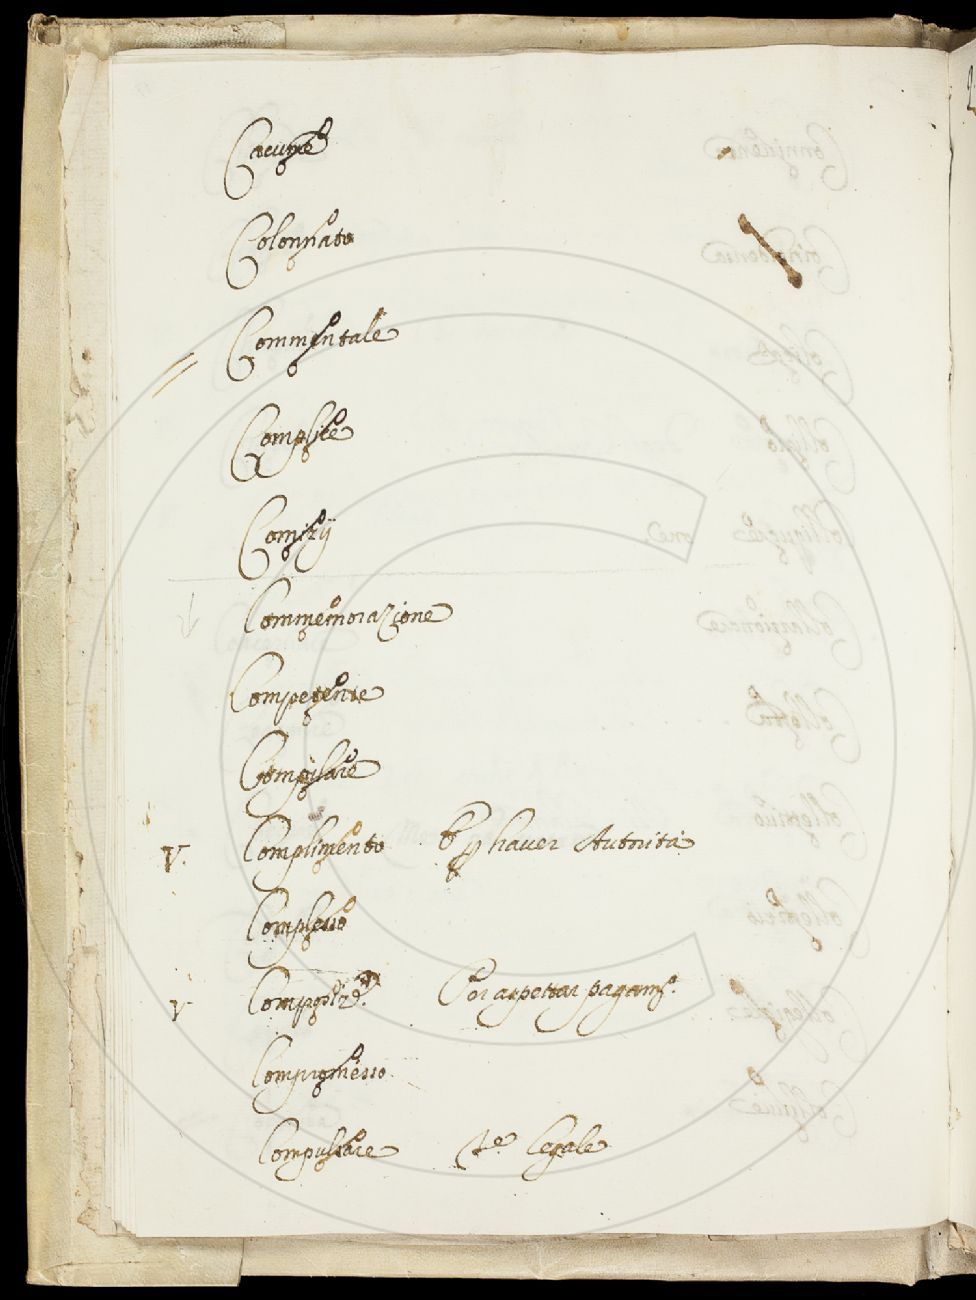 Cacume
Colonnato
Commentale
Complice
Comizij
Commemorazione
Competente
Compilare
V. Complimento p haver Autorità
Complesso
V Composiz.e Por aspettar pagam.to
Compromesso
Compulsare T.e legale